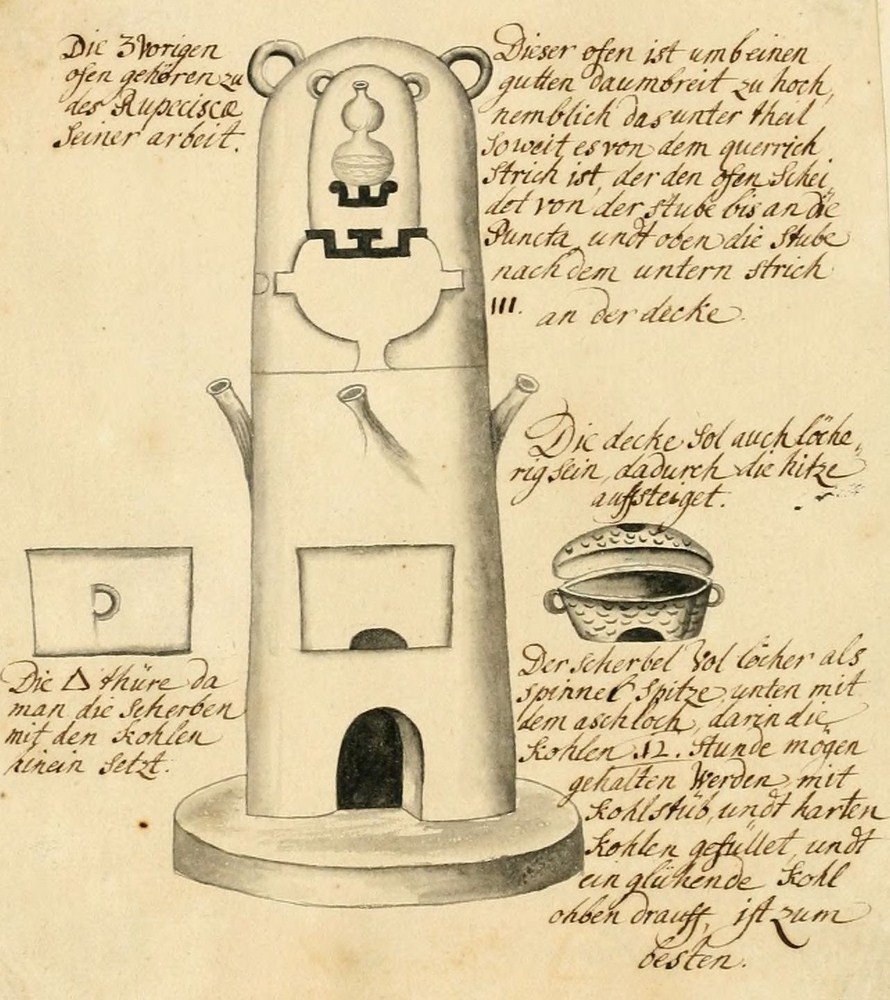 Die 3 Vorigen
ofen gehören zu
des Rupeciscæ
seiner arbeit.
Dieser ofen ist umb einen
gutten daumbreit zu hoch,
nemblich das unter theil
so weit es von dem querrich
strich ist, der den ofen schei
det von der stube bis an die
Puncta, undt oben die stube
nach dem untern strich
III. an der decke.
Die decke sol auch löche,,
rig sein, dadurch die hitze
auffsteiget.
Die △ thüre da
man die scherben
mit den Kohlen
hinein setzt.
Der scherbel Vol löcher als
spinnel spitze, unten mit
dem aschloch, darin die
Kohlen 12. stunde mögen
gehalten werden, mit
Kohlstüb, undt harten
Kohlen gefüllet, undt
ein glühende Kohl
ohben drauff, ist zum
besten.